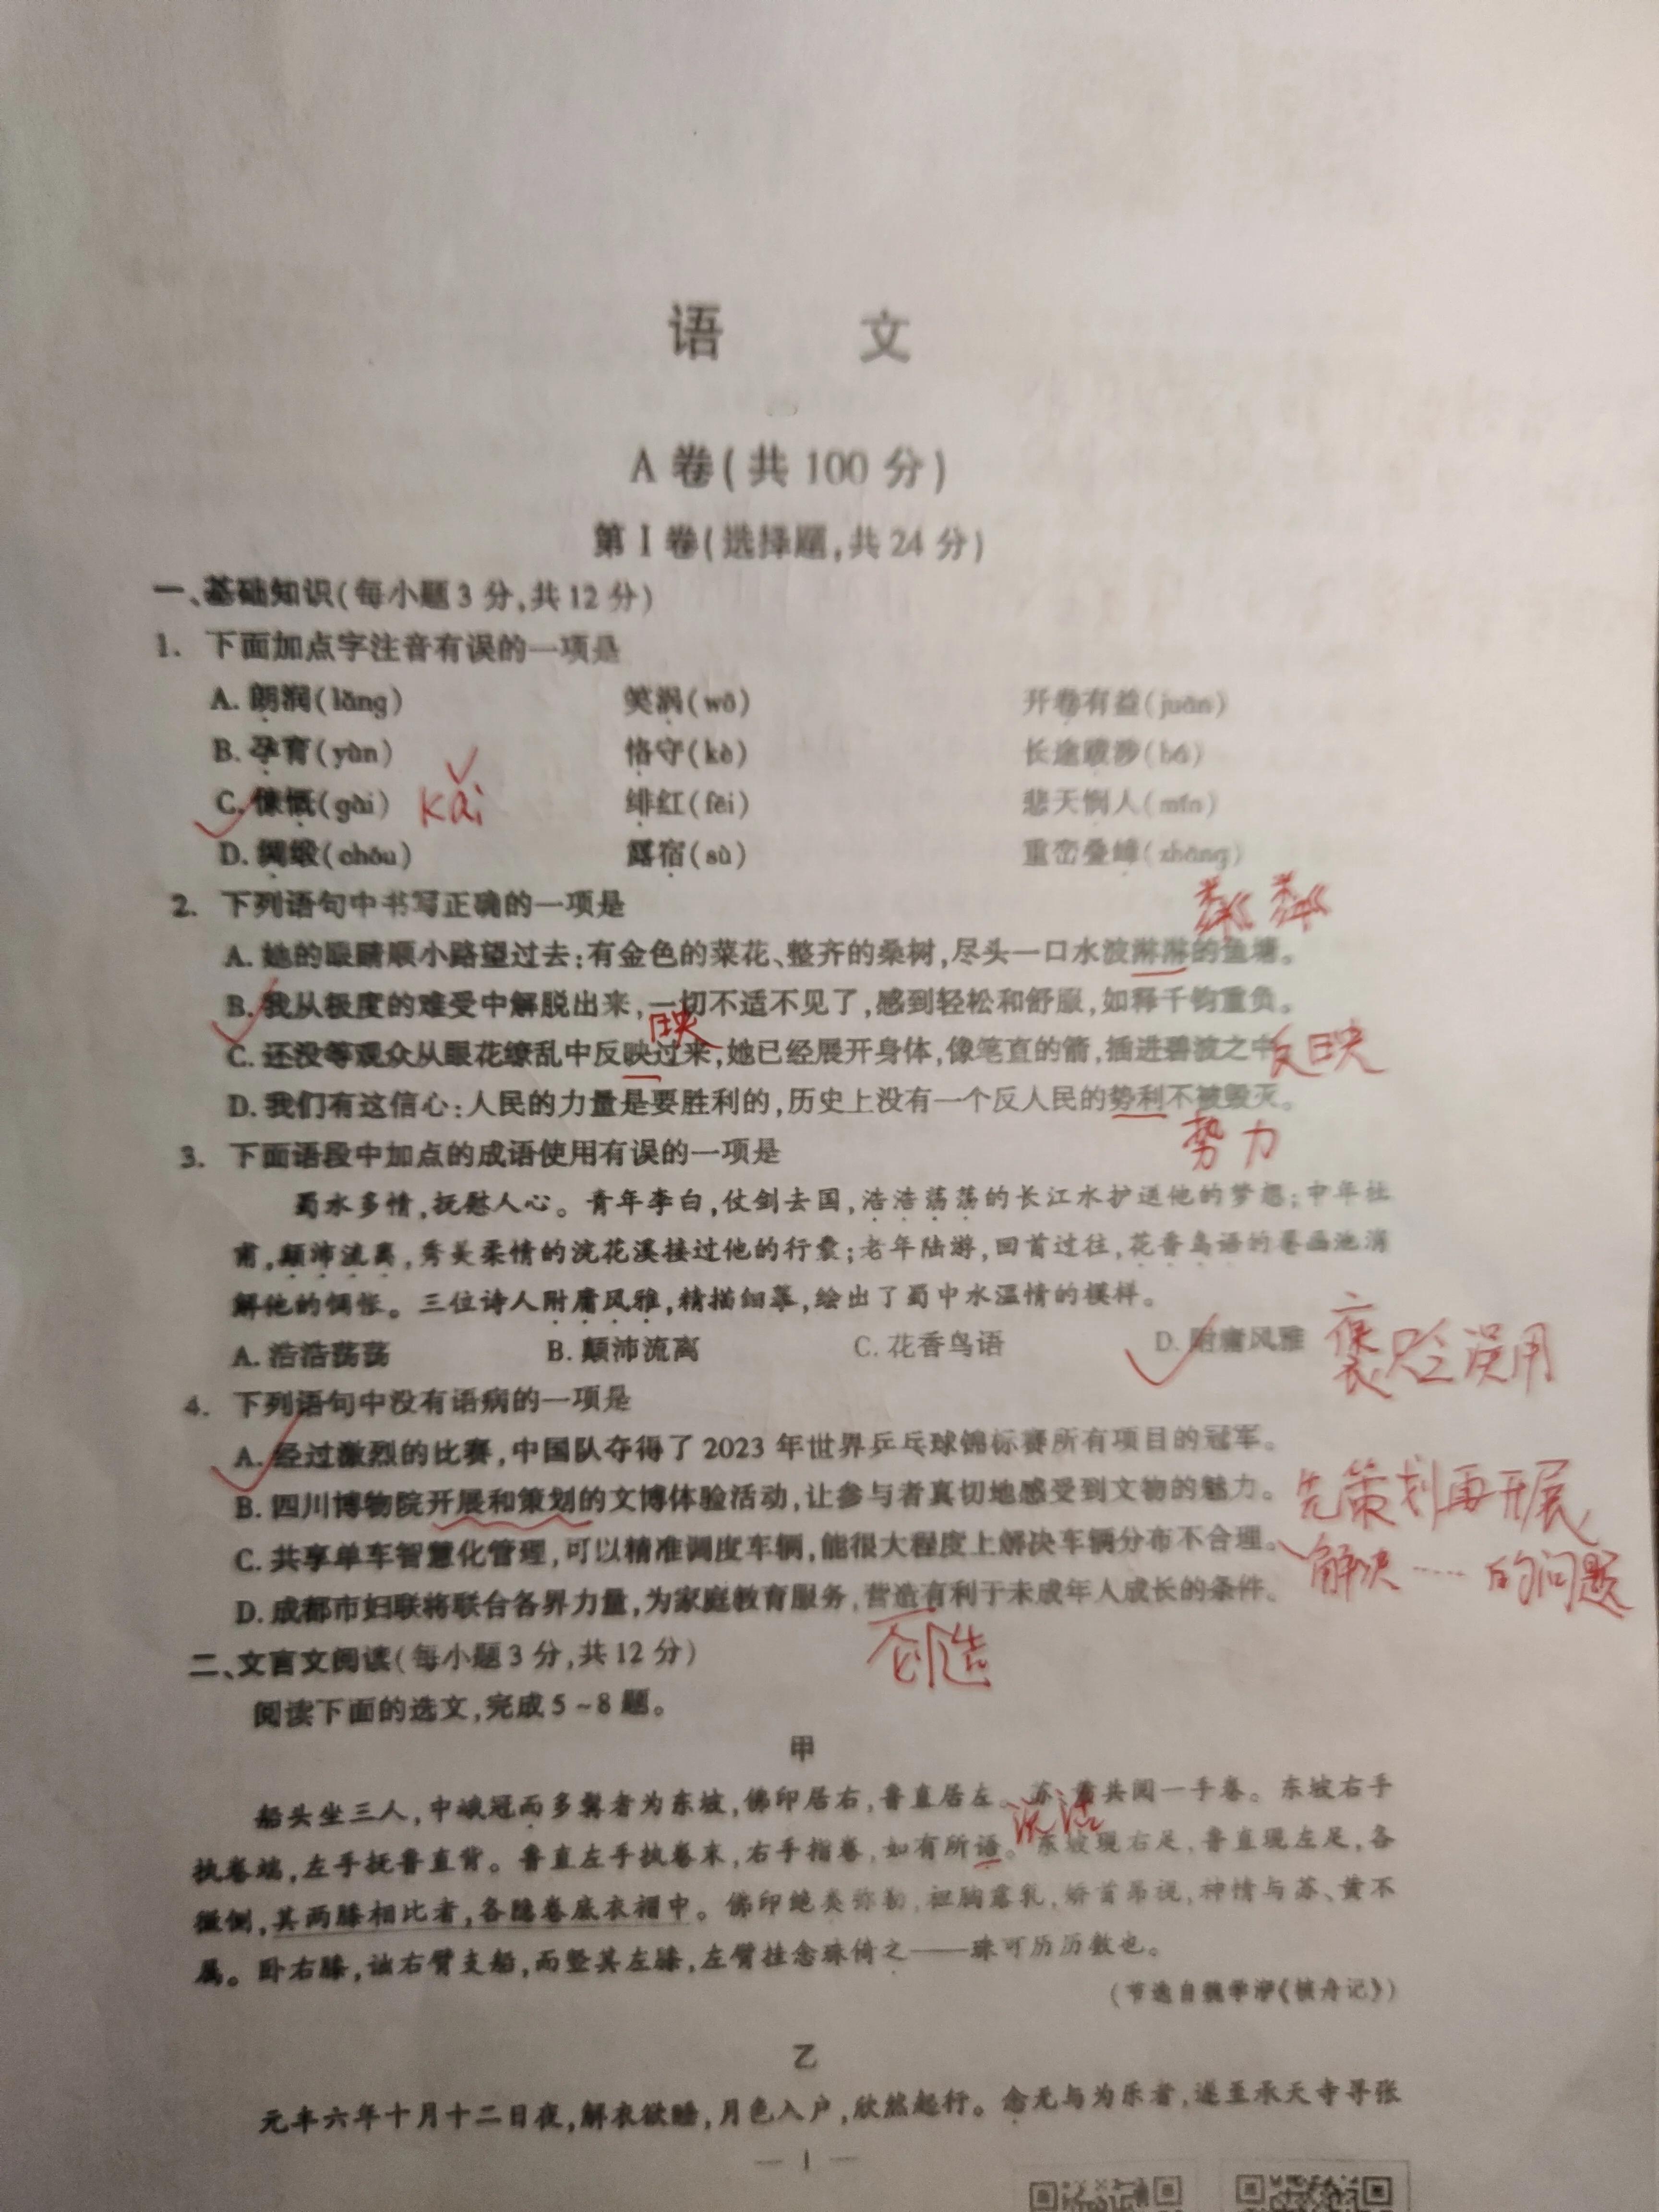 语 文
A 卷(共 100 分)
第 I 卷(选择题,共 24 分)
一、基础知识(每小题 3 分,共 12 分)
1. 下面加点字注音有误的一项是
A. 朗润(lǎng) 笑涡(wō) 开卷有益(juàn)
B. 孕育(yùn) 恪守(kè) 长途跋涉(bá)
C. 慷慨(gài) kǎi 绯红(fēi) 悲天悯人(mǐn)
D. 绸缎(chóu) 露宿(sù) 重峦叠嶂(zhàng)
2. 下列语句中书写正确的一项是
粼粼
A. 她的眼睛顺小路望过去:有金色的菜花、整齐的桑树,尽头一口水波淋淋的鱼塘。
B. 我从极度的难受中解脱出来,一切不适不见了,感到轻松和舒服,如释千钧重负。
映
C. 还没等观众从眼花缭乱中反映过来,她已经展开身体,像笔直的箭,插进碧波之中 反映
D. 我们有这信心:人民的力量是要胜利的,历史上没有一个反人民的势利不被毁灭。
势力
3. 下面语段中加点的成语使用有误的一项是
蜀水多情,抚慰人心。青年李白,仗剑去国,浩浩荡荡的长江水护送他的梦想;中年杜
甫,颠沛流离,秀美柔情的浣花溪接过他的行囊;老年陆游,回首过往,花香鸟语的罨画池消
解他的惆怅。三位诗人附庸风雅,精描细摹,绘出了蜀中水温情的模样。
A. 浩浩荡荡 B. 颠沛流离 C. 花香鸟语 D. 附庸风雅 褒贬误用
4. 下列语句中没有语病的一项是
A. 经过激烈的比赛,中国队夺得了 2023 年世界乒乓球锦标赛所有项目的冠军。
B. 四川博物院开展和策划的文博体验活动,让参与者真切地感受到文物的魅力。 先策划再开展
C. 共享单车智慧化管理,可以精准调度车辆,能很大程度上解决车辆分布不合理。 解决……的问题
D. 成都市妇联将联合各界力量,为家庭教育服务,营造有利于未成年人成长的条件。
创造
二、文言文阅读(每小题 3 分,共 12 分)
阅读下面的选文,完成 5~8 题。
甲
船头坐三人,中峨冠而多髯者为东坡,佛印居右,鲁直居左。苏、黄共阅一手卷。东坡右手
说话
执卷端,左手抚鲁直背。鲁直左手执卷末,右手指卷,如有所语。东坡现右足,鲁直现左足,各
微侧,其两膝相比者,各隐卷底衣褶中。佛印绝类弥勒,袒胸露乳,矫首昂视,神情与苏、黄不
属。卧右膝,诎右臂支船,而竖其左膝,左臂挂念珠倚之——珠可历历数也。
(节选自魏学洢《核舟记》)
乙
元丰六年十月十二日夜,解衣欲睡,月色入户,欣然起行。念无与为乐者,遂至承天寺寻张
— 1 —